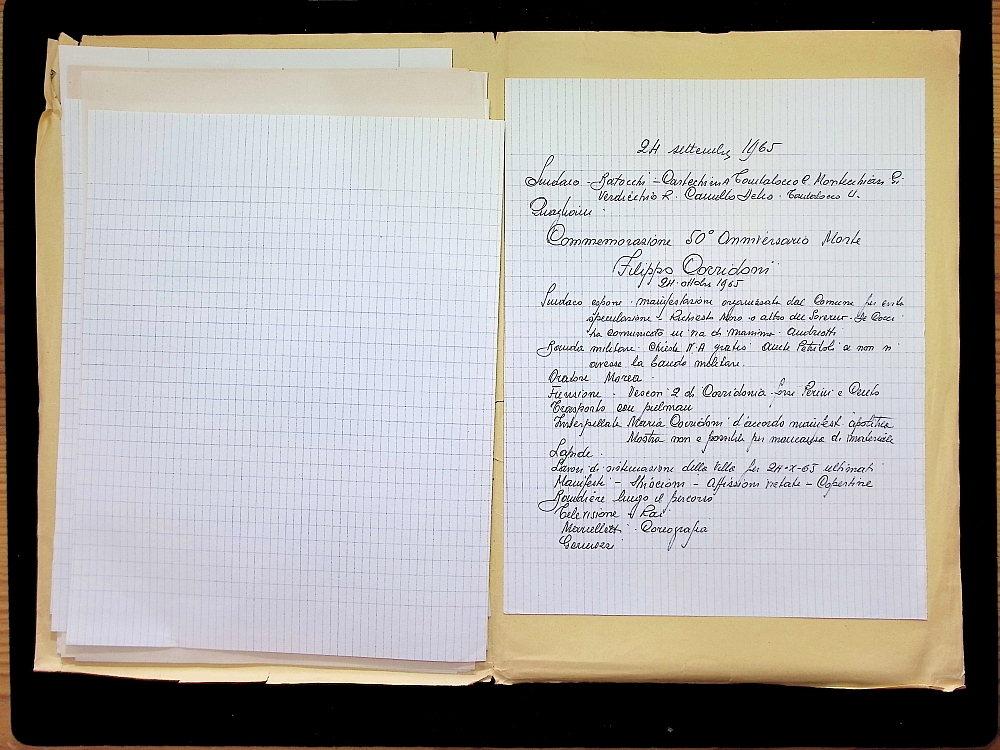 24 settembre 1965
Sindaco - Ratocchi - Cartechini A Tombolacco C. Montecchiari G.
Verdicchio R. Camillo Delio. Tombolacco U.
Quagliani
Commemorazione 50° Anniversario Morte
Filippo Corridoni
24. ottobre 1965
Sindaco espone. manifestazione organizzata dal Comune per evita
speculazione - Richiesta Moro o altro del Governo.
ha comunicato in via di massima. Andreotti
Banda militare: Chiede N.A gratis anche Petritoli se non ci
avesse la banda militare.
Oratore Morea
Funzione. Vescovi 2 di Corridonia.
Trasporto con pulman
Interpellata Maria Corridoni d'accordo manifest. apolitica
Mostra non è possibile per mancanza di materiale
Lapide.
Lavori di sistemazione della Villa per 24-X-65 ultimati
Manifesti - Striscioni - Affissioni vietate - Copertine
Bandiere lungo il percorso
Televisione - Rai
Coreografia